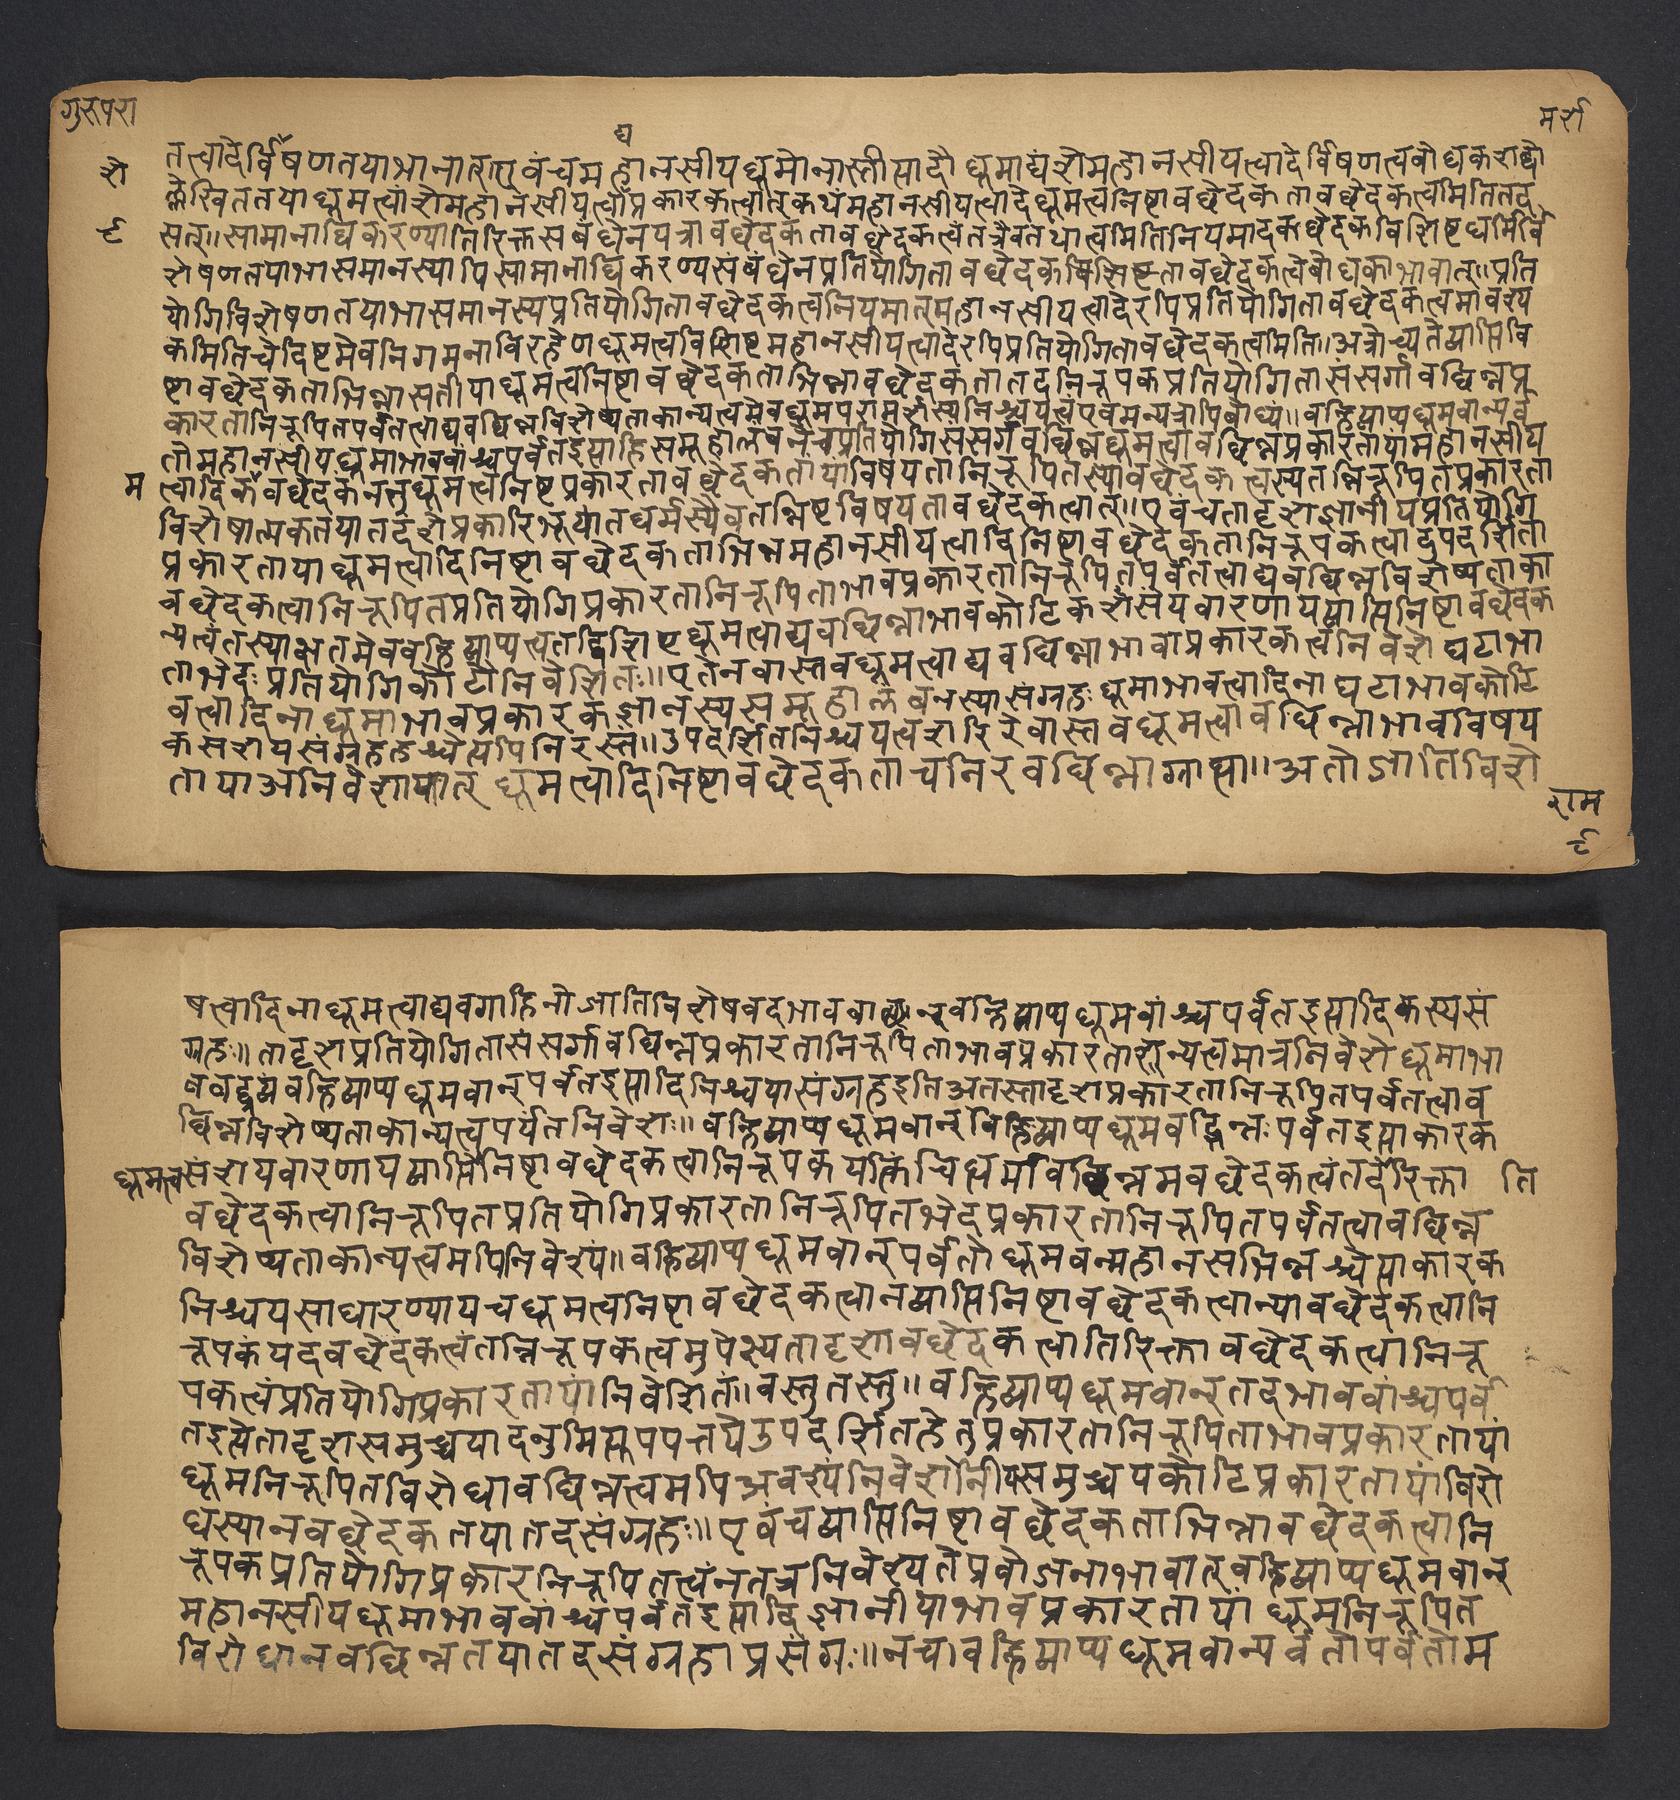 गुरुपरा
मर्शे
द्य
शे
तत्वादेर्विषणतयाभानात्एवंचमहानसीयधूमोनास्तीत्यादौधूमाद्यंशेमहानसीयत्वादेर्विषणत्वबोधकशब्दो
ल्लेखिततयाधूमत्वांशेमहानसीयत्वाप्रकारकत्वात्कथंमहानसीयत्वादेधूमत्वनिष्टावछेदकतावछेदकत्वमितितद
९
सत्॥सामानाधिकरण्यातिरिक्तसंबंधेनयत्रावछेदकतावछेदकत्वंतत्रैवतथात्वमितिनियमादवछेदकविशिष्टधर्मिवि
शेषणतयाभासमानस्यापिसामानाधिकरण्यसंबंधेनप्रतियोगितावछेदकविशिष्टतावछेदकत्वेबाधकाभावात्॥प्रति
योगिविशेषणतयाभासमानस्यप्रतियोगितावछेदकत्वनियमात्महानसीयत्वादेरपिप्रतियोगितावछेदकत्वमावश्य
कमितिचेदिष्टमेवनिगमनाविरहेणधूमत्वविशिष्टमहानसीयत्वादेरपिप्रतियोगितावछेदकत्वमिति॥अत्रोच्यतेव्याप्तिवि
ष्टावछेदकताभिन्नासतीयाधूमत्वनिष्टावछेदकताभिन्नावछेदकतातदनिरूपकप्रतियोगितासंसर्गावछिन्नप्र
कारतानिरूपितपर्वतत्वाद्यवछिन्नविशेष्यताकान्यत्वमेवधूमपरामर्शस्यनिश्चयत्वंएवमन्यत्रापिबोध्यं॥वह्निव्याप्यधूमवान्पर्व
तोमहानसीयधूमाभाववांश्चपर्वतइत्याहिसमूहालंबनेचप्रतियोगिसंसर्गावछिन्नधूमत्वावछिन्नप्रकारतायामहानसीय
म
त्वादिकंवछेदकंनतुधूमत्वनिष्टप्रकारतावछेदकतायाविषयतानिरूपितस्यावछेदकत्वस्यतन्निरूपितप्रकारता
विशेषात्मकतयातदंशेप्रकारिभूयातधर्मस्यैवतन्निष्टविषयतावछेदकत्वात्॥एवंचतादृशज्ञानीयप्रतियोगि
प्रकारतायाधूमत्वादिनिष्टावछेदकताभिन्नमहानसीयत्वादिनिष्टावछेदकतानिरूपकत्वादुपदर्शिता
वछेदकत्वानिरूपितप्रतियोगिप्रकारतानिरूपिताभावप्रकारतानिरूपितपर्वतत्वाद्यवछिन्नविशेष्यताका
न्यत्वंतस्याक्षतमेववह्निव्याप्यत्वतद्विशिष्टधूमत्वाद्यवछिन्नाभावकोटिकशंसयवारणायव्याप्तिनिष्टावछेदक
ताभेदःप्रतियोगिकोटौनिवेशितः॥एतेनवास्तवधूमत्वाद्यवछिन्नाभावाप्रकारकत्वनिवेशेघटाभा
वत्वादिनाधूमाभावप्रकारकज्ञानस्यसमूहालंबनस्यासंग्रहःधूमाभावत्वादिनाघटाभावकोटि
कसंशयसंग्रहतश्चेत्यपिनिरस्तं॥उपदर्शितनिश्चयत्वशरिरेवास्तवधूमत्वावछिन्नाभावविषय
तायाअनिवेशायात्धूमत्वादिनिष्टावछेदकताचनिरवछिन्नाग्राह्या॥अतोज्ञातिविशे
राम
९
षत्वादिनाधूमत्वाद्यवगाहिनोज्ञातिविशेषवदभाववान्वह्निव्याप्यधूमवांश्चपर्वतइत्यादिकस्यसं
ग्रहः॥तादृशप्रतियोगितासंसर्गावछिन्नप्रकारतानिरूपिताभावप्रकारताशून्यत्वमात्रनिवेशेधूमाभा
ववद्वृत्त्यंवह्निव्याप्यधूमवान्पर्वतइत्यादिनिश्चयासंग्रहइतिअतस्तादृशप्रकारतानिरूपितपर्वतत्वाव
छिन्नविशेष्यताकान्यत्वपर्यंतनिवेशः॥वह्निव्याप्यधूमवान्वह्निव्याप्यधूमवद्भिन्नःपर्वतइत्याकारक
धूमत्व
संशयवारणायव्याप्तिनिष्टावछेदकत्वानिरूपकयत्किंचिधर्मावछिन्नमवछेदकत्वंतदेरिक्ता
ति
वछेदकत्वानिरूपितप्रतियोगिप्रकारतानिरूपितभेदप्रकारतानिरूपितपर्वतत्वावछिन्न
विशेष्यताकान्यत्वमपिनिवेश्यं॥वह्निव्याप्यधूमवान्पर्वतोधूमवन्महानसभिन्नश्चेत्याकारक
निश्चयसाधारण्यायचधूमत्वनिष्टावछेदकत्वानव्याप्तिनिष्टावछेदकत्वान्यावछेदकत्वानि
रूपकंयदवछेदकत्वंतन्निरूपकत्वमुपेक्ष्यतादृशावछेदकत्वातिरिक्तावछेदकत्वानिरू
पकत्वंप्रतियोगिप्रकारतायांनिवेशितं॥वस्तुतस्तु॥वह्निव्याप्यधूमवान्तदभाववांश्चपर्व
तइत्येतादृशसमुच्चयादनुमित्युपपत्तयेउपदर्शितहेतुप्रकारतानिरूपिताभावप्रकारतायां
धूमनिरूपितविरोधावछिन्नत्वमपिअवश्यंनिवेशनीयसमुच्चयकोटिप्रकारतायांविरो
धस्यानवछेदकतयातदसंग्रहः॥एवंचव्याप्तिनिष्टावछेदकताभिन्नावछेदकत्वानि
रूपकप्रतियोगिप्रकारनिरूपितत्वंनतत्रनिवेश्यतेप्रयोजनाभावात्वह्निव्याप्यधूमवान्
महानसीयधूमाभाववांश्चपर्वतइत्यादिज्ञानीयाभावप्रकारतायांधूमनिरूपित
विरोधानवछिन्नतयातदसंग्रहाप्रसंगः॥नचावह्निव्याप्यधूमवान्पर्वतोपर्वतोम